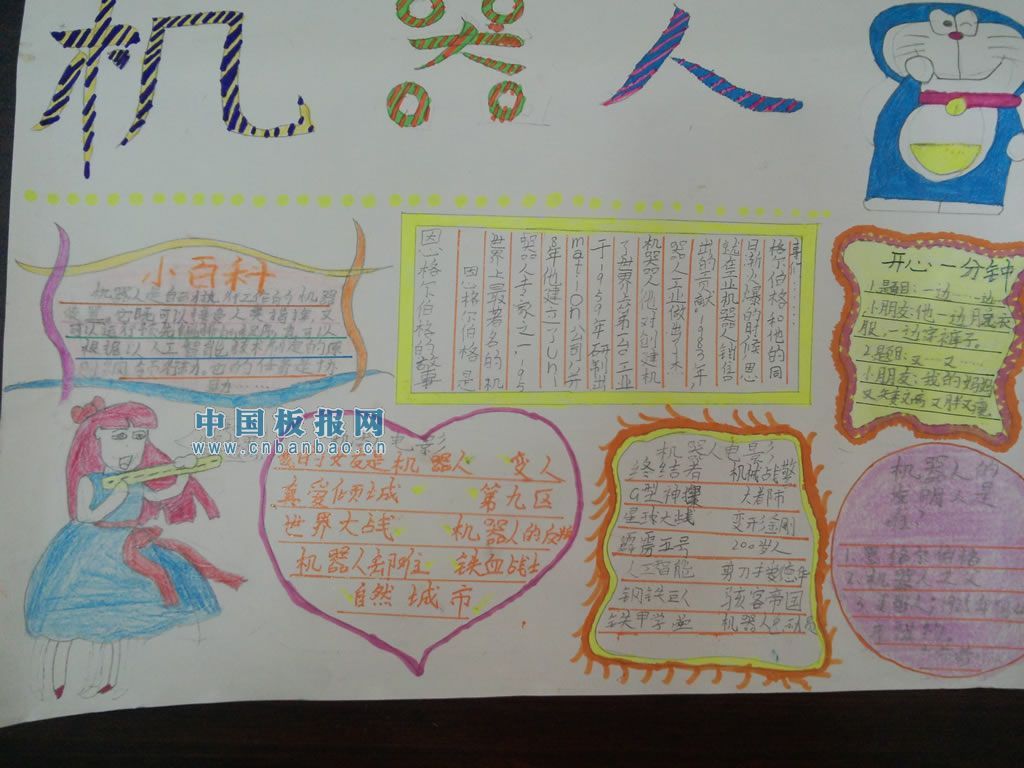 机器人
小百科
机器人是自动执行工作的机器
装置。它既可以接受人类指挥，又
可以运行预先编排的程序，也可以
根据以人工智能技术制定的原
中国板报网
www.cnbanbao.cn
因格尔伯格的故事
因格尔伯格是
世界上最著名的机
器人专家之一，195
8年他建立了Uni-
mation公司，并
于1959年研制出
了世界上第一台工业
机器人，他对创建机
器人工业做出了杰
出的贡献。1983年，
就在工业机器人销售
日渐火爆的时候，思
格尔伯格和他的同
事们……
开心一分钟
1.题目：一边……一边
小朋友：他一边脱衣
服，一边穿裤子。
2.题目：又……又……
小朋友：我的妈妈
又矮又高又胖又瘦
电影
我的女友是机器人 变人
真爱倾城 第九区
世界大战 机器人的反叛
机器人部队 铁血战士
自然城市
机器人电影
终结者 机械战警
G型神探 大都市
星球大战 变形金刚
霹雳五号 200岁人
人工智能 剪刀手爱德华
钢铁巨人 骇客帝国
铁甲学堂
机器人的
发明人是
谁？
1.恩格尔伯格
2.机器人之父